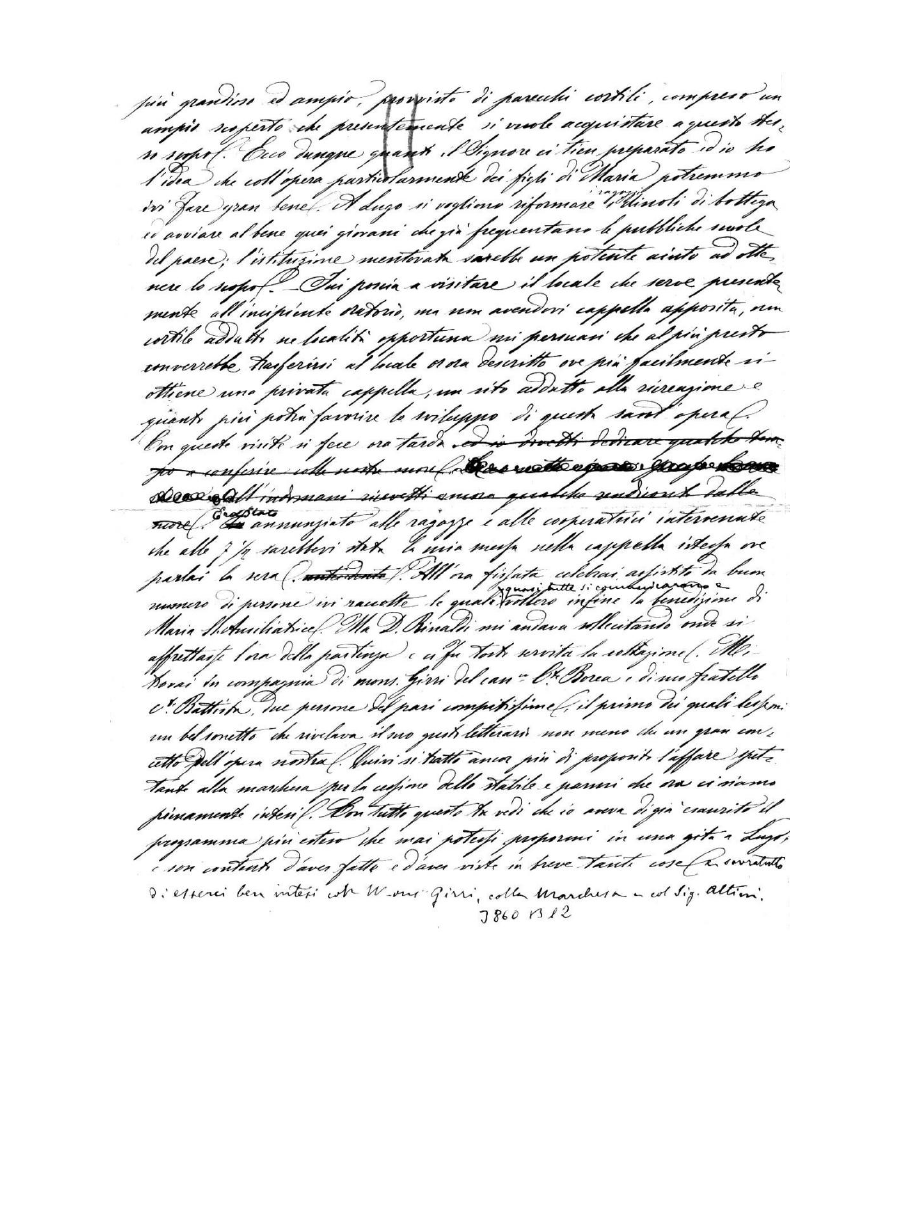 più grandioso ed ampio, provvisto di parecchi cortili, compreso un
ampio scoperto che presentemente si vuole acquistare a questo stes-
so scopo. Ecco dunque quanto il Signore ci tien preparato ed io ho
l'idea che coll'opera particolarmente dei figli di Maria potremmo
ivi fare gran bene. A Lugo si vogliono riformare i ragazzi di bottega
ed avviare al bene quei giovani che già frequentano le pubbliche scuole
del paese; l'istituzione mentovata sarebbe un potente aiuto ad otte-
nere lo scopo. Fui poscia a visitare il locale che serve presente-
mente all'incipiente oratorio, ma non avendovi cappella apposita, non
cortile addatto ne località opportuna mi persuasi che al più presto
converrebbe trasferirsi al locale or ora descritto ove più facilmente si
ottiene una privata cappella, un sito addatto alla ricreazione e
quanto più potrà favorire lo sviluppo di questa sant'opera.
Con queste visite si fece ora tarda ed io dovetti dedicare qualche tem-
po a conferire colle nostre suore.
all'indomani ricevetti ancora qualche rendiconto dalle
suore. Era stato annunziato alle ragazze e alle cooperatrici intervenute
che alle 7 ½ sarebbevi stata la mia messa nella cappella istessa ove
parlai la sera. All'ora fissata celebrai assistito da buon
numero di persone ivi raccolte le quali quasi tutte si comunicarono e vollero infine la benedizione di
Maria SS. Ausiliatrice. Ma D. Rinaldi mi andava sollecitando onde si
affrettasse l'ora della partenza e ci fu tosto servita la colazione. Mi
trovai in compagnia di mons. Girri del canco Ct. Borea e di suo fratello
Ct. Battista, due persone del pari compitissime, il primo dei quali lesse
un bel sonetto che rivelava il suo gusto letterario non meno che un gran con-
cetto dell'opera nostra. Quivi si trattò ancor più di proposito l'affare spet-
tante alla marchesa per la cessione dello stabile e parmi che ora ci siamo
pienamente intesi. Con tutto questo tu vedi che io aveva di già esaurito il
programma più esteso che mai potessi propormi in una gita a Lugo,
e son contento d'aver fatte e d'aver viste in breve tante cose e sovratutto
di esserci ben intesi con Mons Girri, colla Marchesa e col Sig. Altini.
3860 B12